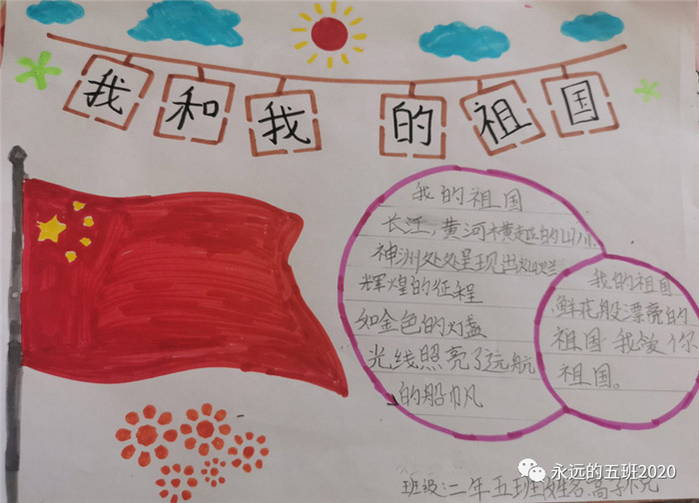 我和我的祖国
我的祖国
长江,黄河
神洲处处呈现出灿烂
辉煌的征程
如金色的灯盏
光线照亮了远航
的船帆
我的祖国
鲜花般漂亮的
祖国 我爱你
祖国。
班级:二年五班 姓名
永远的五班2020